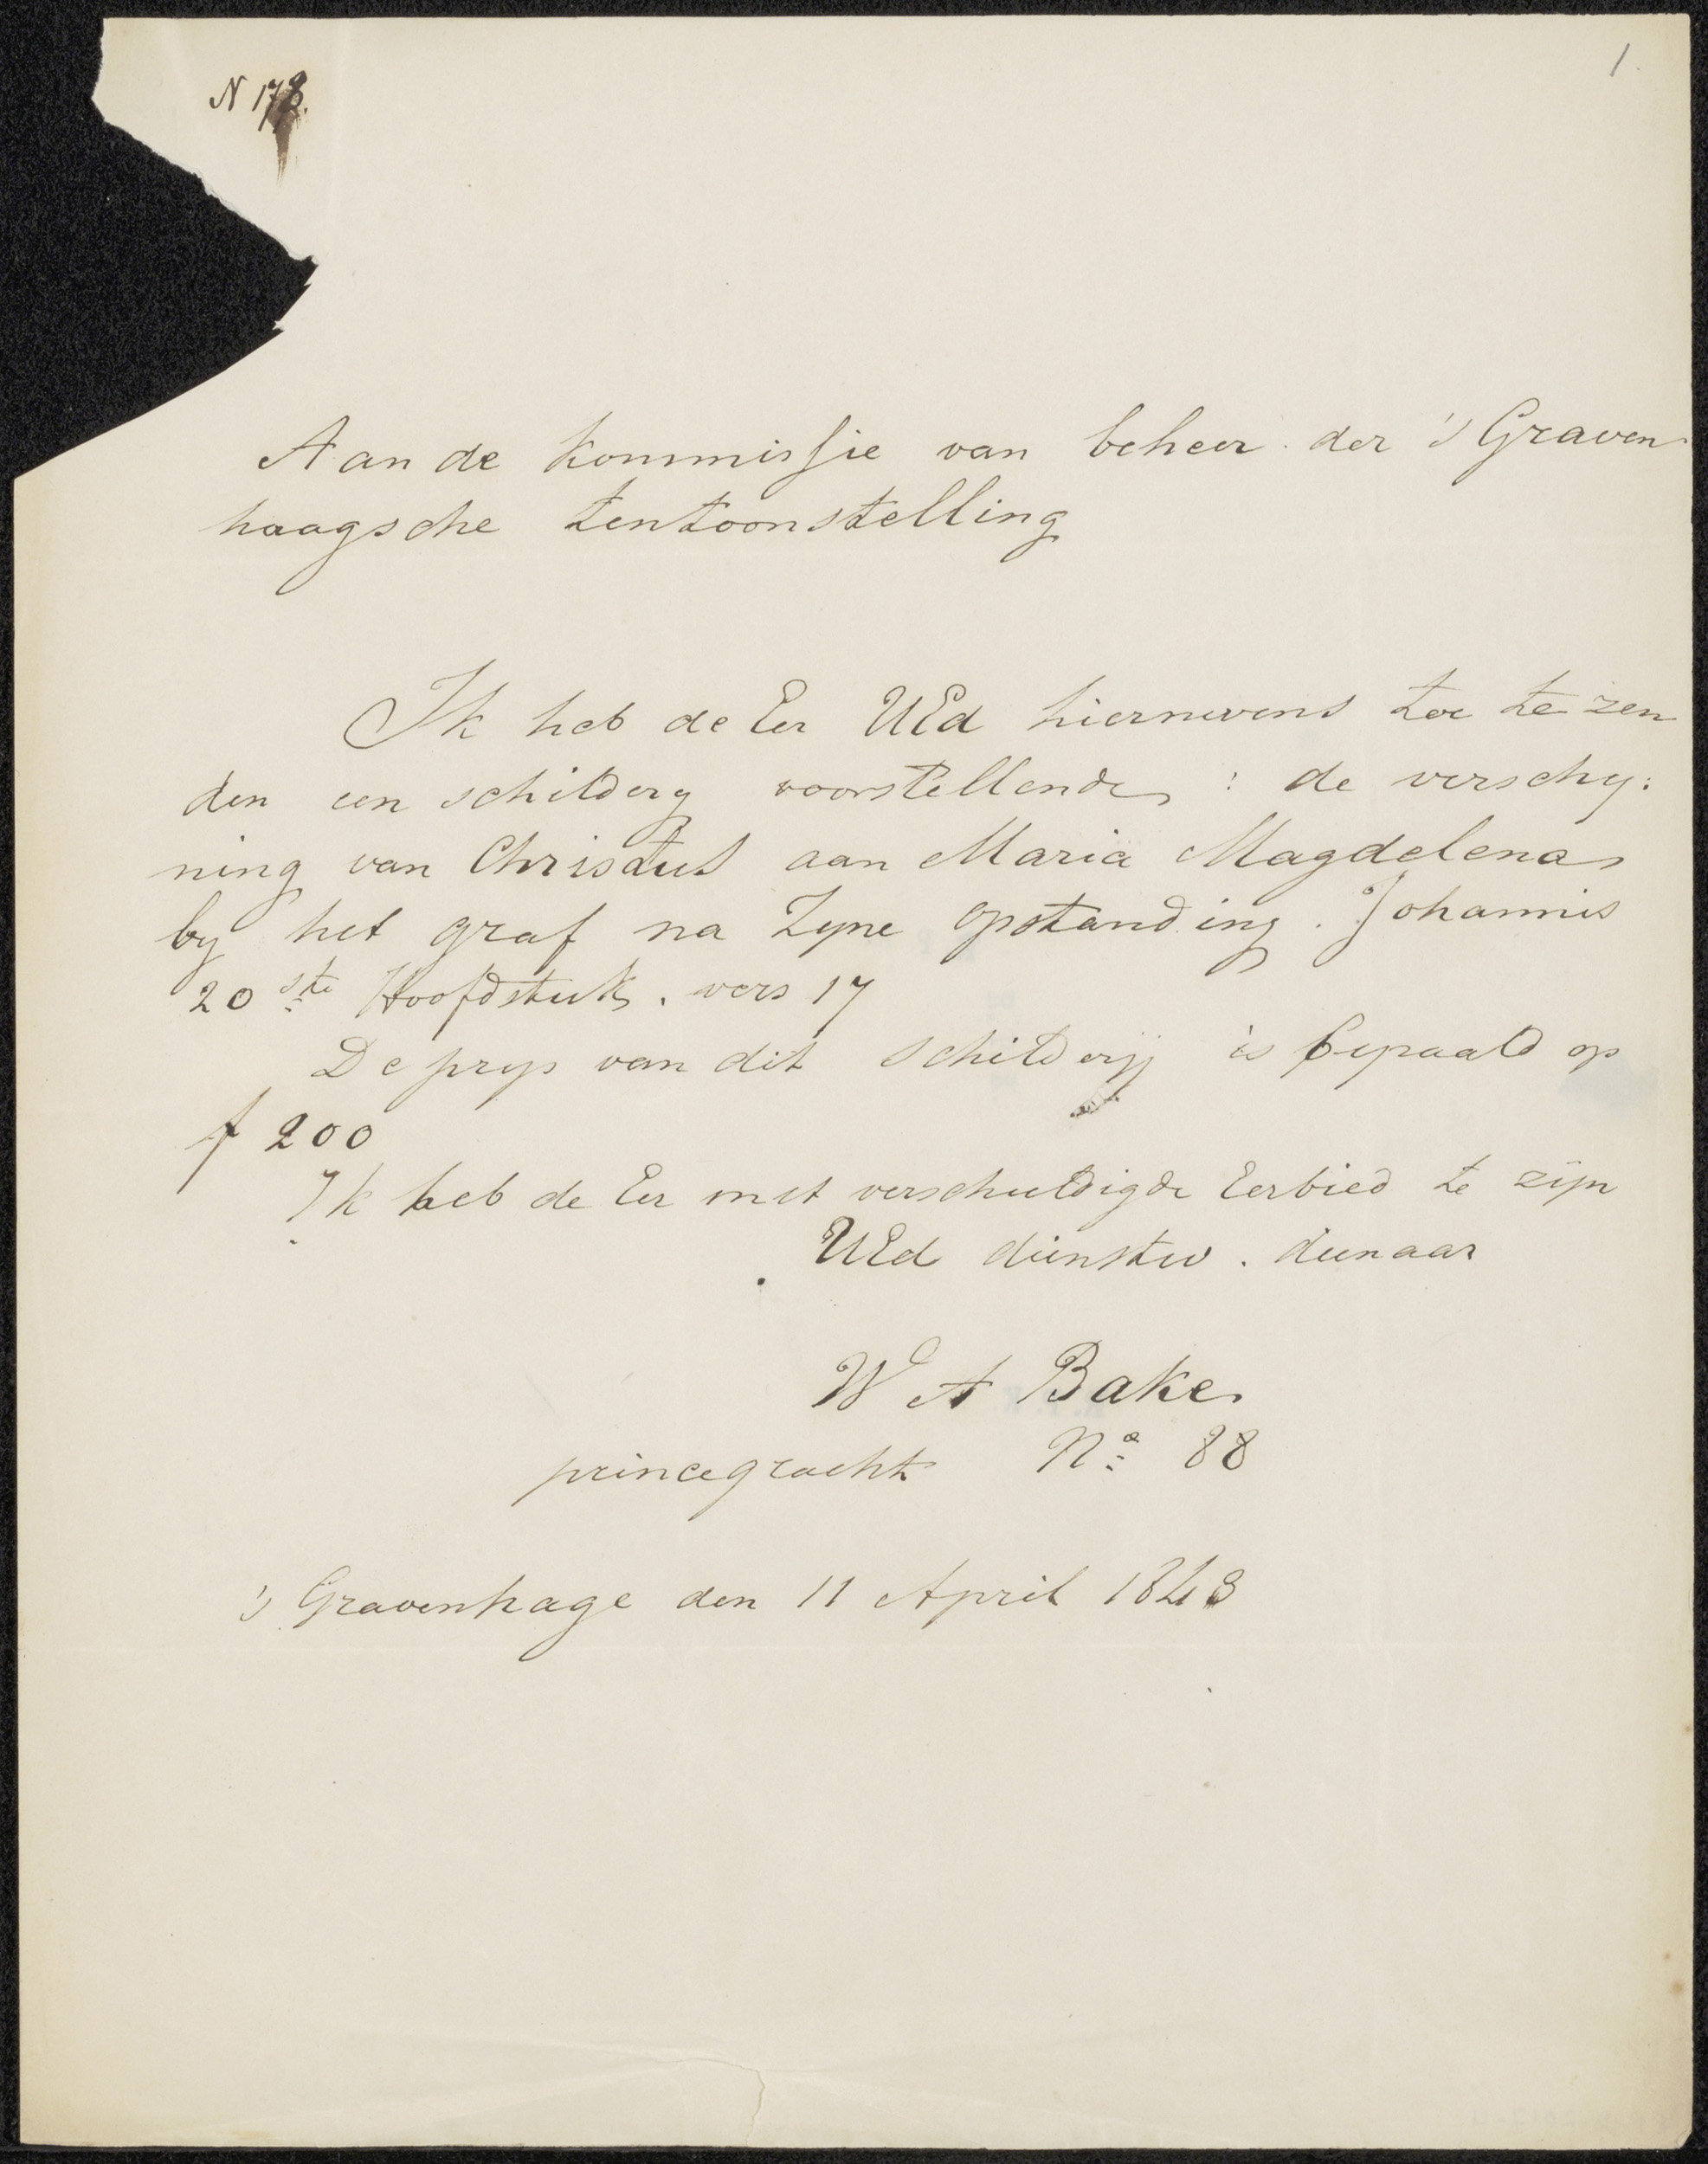 1.
N 178.
Aan de kommissie van beheer der 's Graven
haagsche tentoonstelling
Ik heb de Eer UEd hiernevens toe te zen
den een schildery voorstellende : de verschy:
ning van Christus aan Maria Magdelena
by het graf na Zyne opstanding. Johannis
20ste Hoofdstuk. vers 17
De prys van dit schildery is bepaald op
f 200
Ik heb de Eer met verschuldigde Eerbied te zijn
UEd dienstw. dienaar
W A Bake
princegracht No 88
's Gravenhage den 11 April 1843